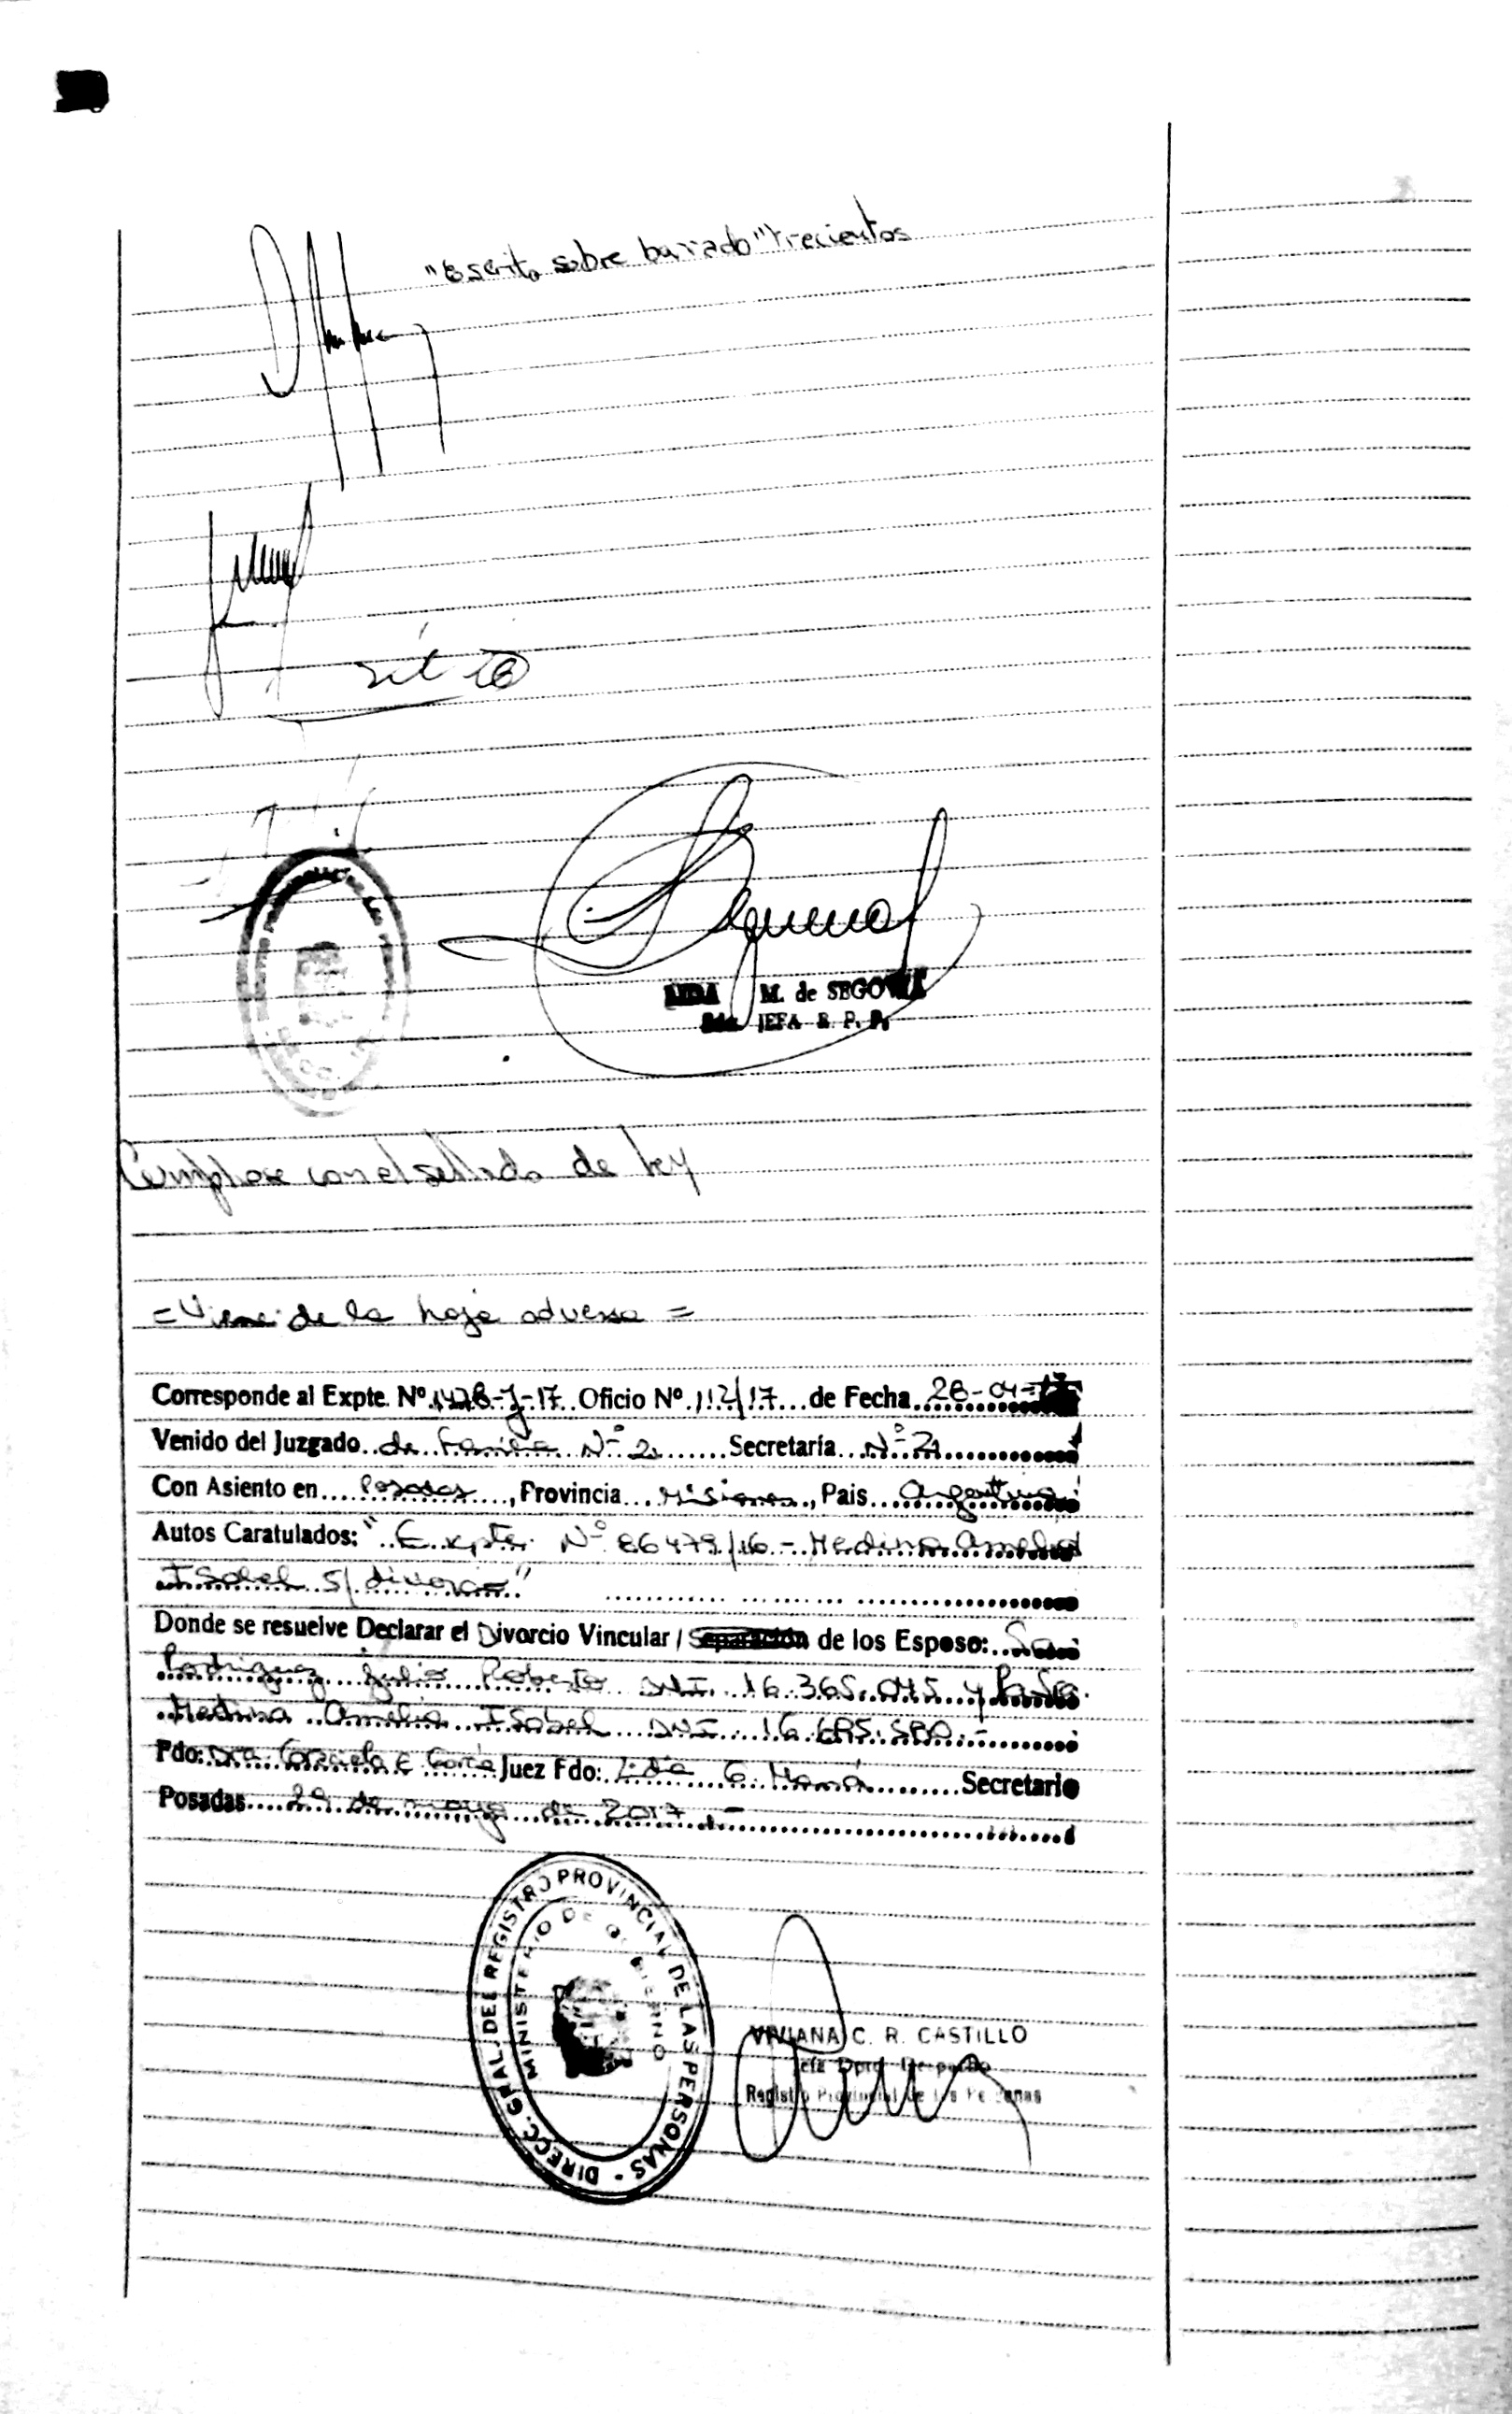 "Escrito sobre borrado" trecientos
M. de SEGOVIA
JEFA R. P. P.
Cumplase con el sellado de ley
= Viene de la hoja adversa =
Corresponde al Expte. Nº 1428-J-17 Oficio Nº 112/17 de Fecha 28-04-17
Venido del Juzgado de Familia Nº 2 Secretaría Nº 2
Con Asiento en Posadas, Provincia Misiones, Pais Argentina
Autos Caratulados: "Expte. Nº 86479/16 - Medina Amelia
Isabel s/ divorcio"
Donde se resuelve Declarar el Divorcio Vincular / Separación de los Esposo: Sr.
Rodriguez Julio Roberto DNI 16.365.045 y la Sra.
Medina Amelia Isabel DNI 16.695.580.-
Fdo: Dra Graciela E Juez Fdo: Lidia G. Secretario
Posadas 29 de mayo de 2017.-
DIRECC. GRAL. DEL REGISTRO PROVINCIAL DE LAS PERSONAS -
MINISTERIO DE GOBIERNO
VIVIANA C. R. CASTILLO
Jefa Dpto. Despacho
Registro Provincial de las Personas